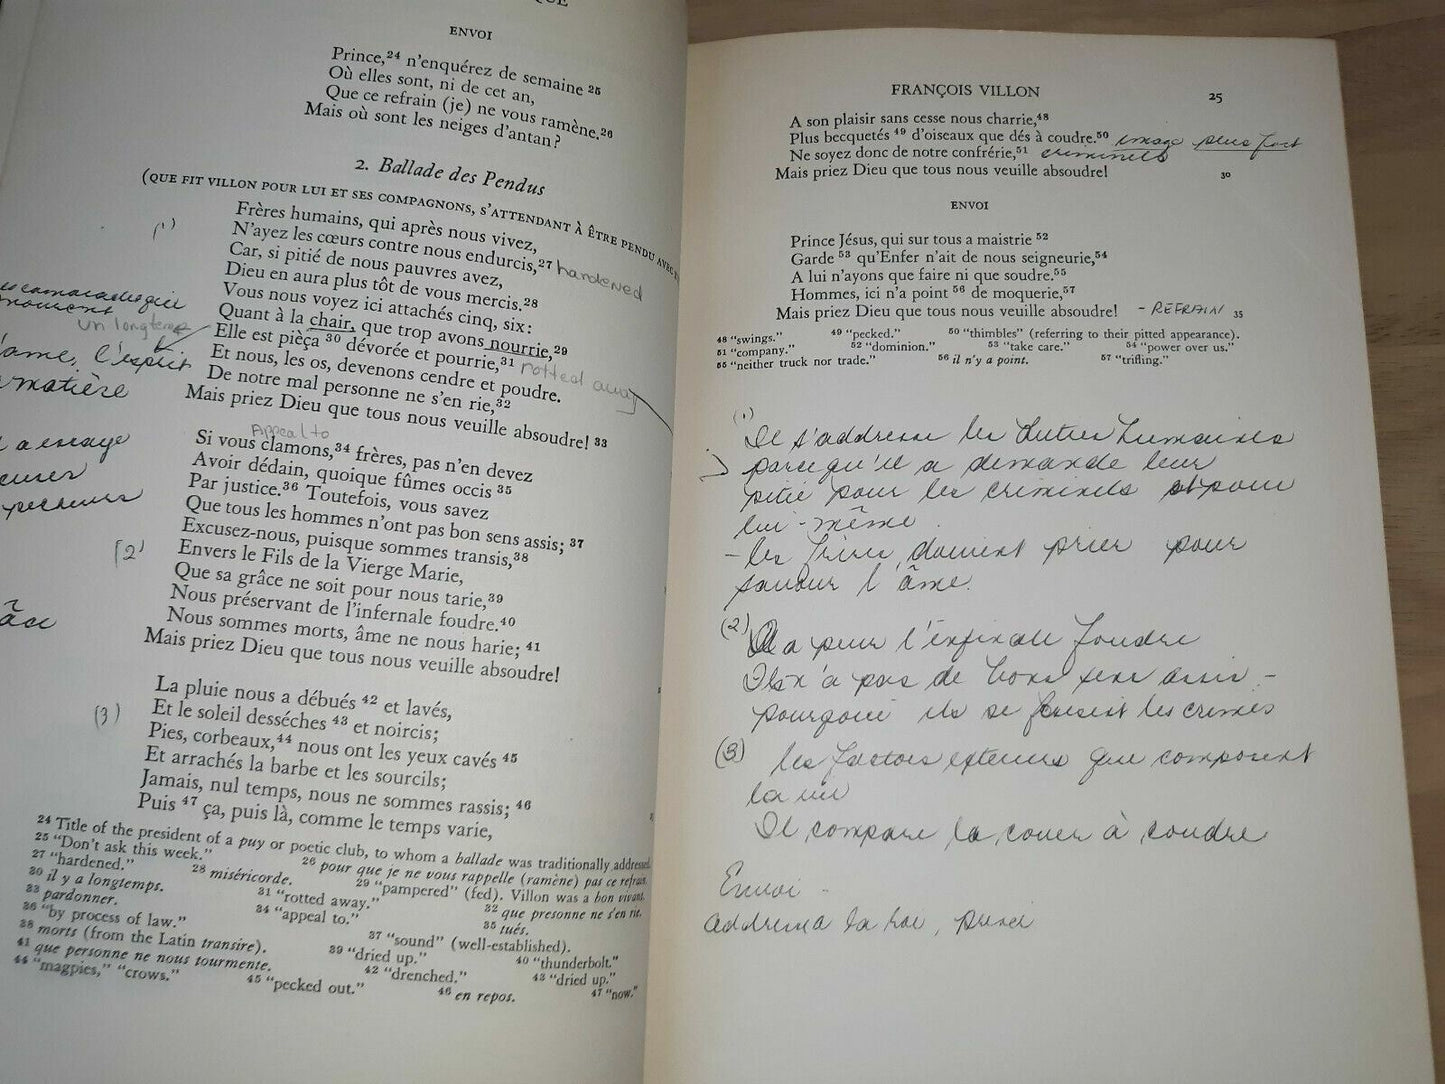 QUE
ENVOI
Prince,24 n'enquérez de semaine 25
Où elles sont, ni de cet an,
Que ce refrain (je) ne vous ramène.26
Mais où sont les neiges d'antan?
2. Ballade des Pendus
(QUE FIT VILLON POUR LUI ET SES COMPAGNONS, S'ATTENDANT À ÊTRE PENDU AVEC
(1)
Frères humains, qui après nous vivez,
N'ayez les cœurs contre nous endurcis,27 hardened
Car, si pitié de nous pauvres avez,
Dieu en aura plus tôt de vous mercis.28
Vous nous voyez ici attachés cinq, six:
Quant à la chair, que trop avons nourrie,29
un longtemps
Elle est pièça 30 dévorée et pourrie,31 rotted away
Et nous, les os, devenons cendre et poudre.
l'esprit
De notre mal personne ne s'en rie,32
matière
Mais priez Dieu que tous nous veuille absoudre! 33
Appeal to
Si vous clamons,34 frères, pas n'en devez
Avoir dédain, quoique fûmes occis 35
Par justice.36 Toutefois, vous savez
Que tous les hommes n'ont pas bon sens assis; 37
Excusez-nous, puisque sommes transis,38
(2)
Envers le Fils de la Vierge Marie,
Que sa grâce ne soit pour nous tarie,39
Nous préservant de l'infernale foudre.40
Nous sommes morts, âme ne nous harie; 41
Mais priez Dieu que tous nous veuille absoudre!
La pluie nous a débués 42 et lavés,
(3)
Et le soleil desséches 43 et noircis;
Pies, corbeaux,44 nous ont les yeux cavés 45
Et arrachés la barbe et les sourcils;
Jamais, nul temps, nous ne sommes rassis; 46
Puis 47 ça, puis là, comme le temps varie,
24 Title of the president of a puy or poetic club, to whom a ballade was traditionally addressed.
25 "Don't ask this week." 26 pour que je ne vous rappelle (ramène) pas ce refrain.
27 "hardened." 28 miséricorde. 29 "pampered" (fed). Villon was a bon vivant.
30 il y a longtemps. 31 "rotted away." 32 que presonne ne s'en rie.
33 pardonner. 34 "appeal to." 35 tués.
36 "by process of law." 37 "sound" (well-established).
38 morts (from the Latin transire). 39 "dried up." 40 "thunderbolt."
41 que personne ne nous tourmente. 42 "drenched." 43 "dried up."
44 "magpies," "crows." 45 "pecked out." 46 en repos. 47 "now."
FRANÇOIS VILLON 25
A son plaisir sans cesse nous charrie,48
Plus becquetés 49 d'oiseaux que dés à coudre.50 image plus fort
Ne soyez donc de notre confrérie,51 criminels
Mais priez Dieu que tous nous veuille absoudre! 30
ENVOI
Prince Jésus, qui sur tous a maistrie 52
Garde 53 qu'Enfer n'ait de nous seigneurie,54
A lui n'ayons que faire ni que soudre.55
Hommes, ici n'a point 56 de moquerie,57
Mais priez Dieu que tous nous veuille absoudre! - REFRAIN 35
48 "swings." 49 "pecked." 50 "thimbles" (referring to their pitted appearance).
51 "company." 52 "dominion." 53 "take care." 54 "power over us."
55 "neither truck nor trade." 56 il n'y a point. 57 "trifling."
(1)
Il s'addresse les autres humaines
parcequ'il a demande leur
pitié pour les criminels et pour
lui-même.
- les frères doivent prier pour
sauver l'âme.
(2)
Il a peur l'enfirale foudre
Ils n'a pas de bons sens assis -
pourquoi ils se faisent les crimes
(3) les factors exteurs que composent
la vie
Il compare la couer à coudre
Envoi -
addresse la roi, prince